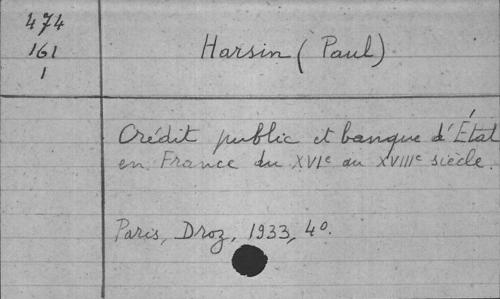 474
161
1
Harsin (Paul)
Crédit public et banque d'État
en France du XVIe au XVIIIe siècle.
Paris, Droz, 1933, 4o.